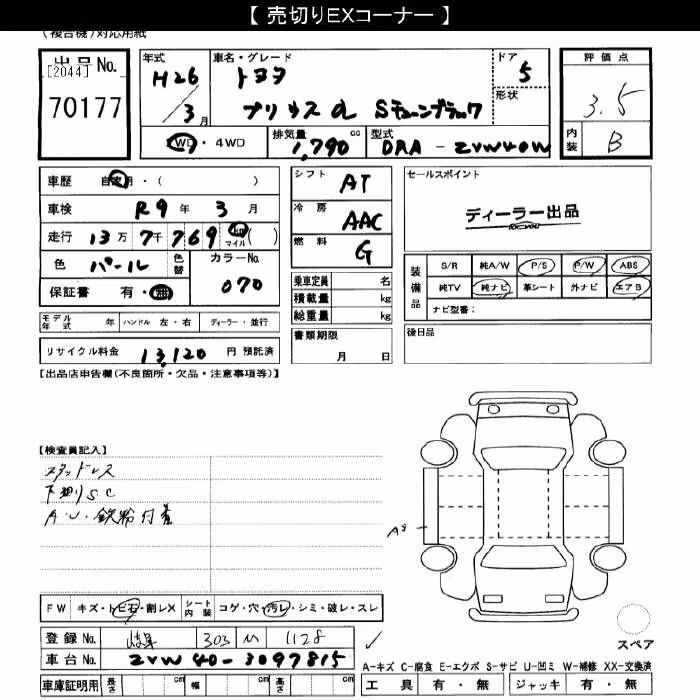 【 売切りEXコーナー 】
(複合機)対応用紙
出品 No.
[2044]
70177
年式
H26
/3 月
車名・グレード
トヨタ
プリウス α Sチューンブラック
ドア
5
形状
評価点
3.5
内装
B
2WD ・ 4WD
排気量
1,790 cc
型式
DAA - ZVW40W
車歴 自家用・( )
車検 R9 年 3 月
走行 13万 7千 769 km マイル ( )
色 パール 色替
カラーNo. 070
保証書 有・無
モデル年式 年 ハンドル 左・右 ディーラー・並行
リサイクル料金 13,120 円 預託済
シフト AT
冷房 AAC
燃料 G
乗車定員 名
積載量 kg
総重量 kg
書類期限
月 日
セールスポイント
ディーラー出品
装備品
S/R 純A/W P/S P/W ABS
純TV 純ナビ 革シート 外ナビ エアB
ナビ型番:
後日品
【出品店申告欄(不良箇所・欠品・注意事項等)】
【検査員記入】
スタッドレス
下廻りSC
A・U・鉄粉付着
FW キズ・トビ石・割レX シート内装 コゲ・穴・汚レ・シミ・破レ・スレ
登録 No. 岐阜 303 1128
車台 No. ZVW40-3097815
車庫証明用 長さ cm 幅 cm 高さ cm
スペア
A-キズ C-腐食 E-エクボ S-サビ U-凹ミ W-補修 XX-交換済
工具 有・無 ジャッキ 有・無